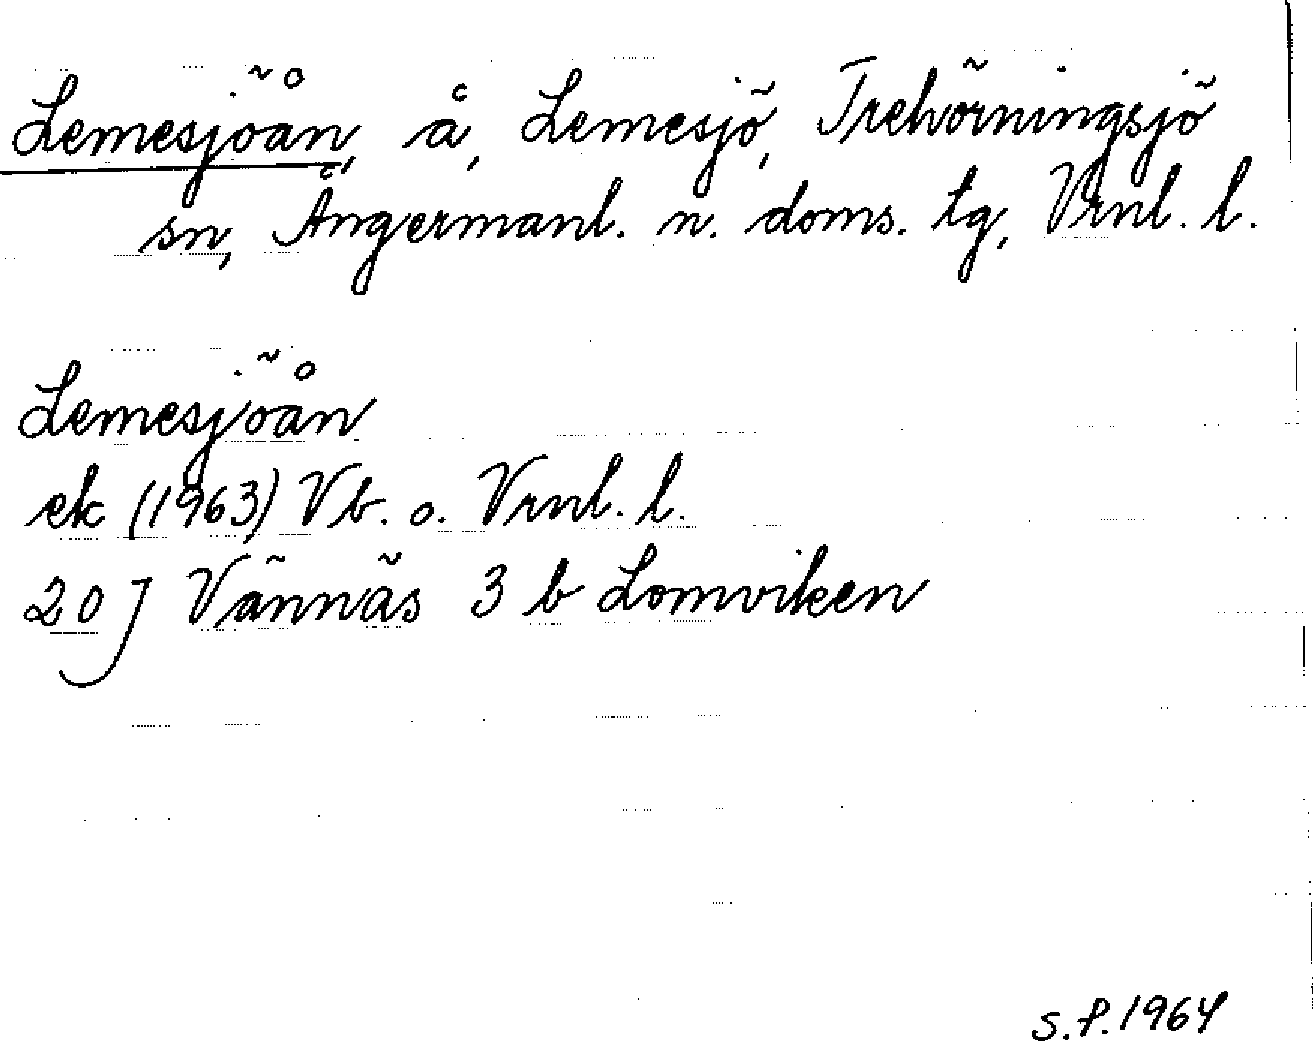 Lemesjöån, å, Lemesjö, Trehörningsjö
sn, Ångermanl. n. doms. tg, Vrnl. l.
Lemesjöån
ek (1963) Vb. o. Vrnl. l.
20 J Vännäs 3 b Lomviken
S.F. 1964